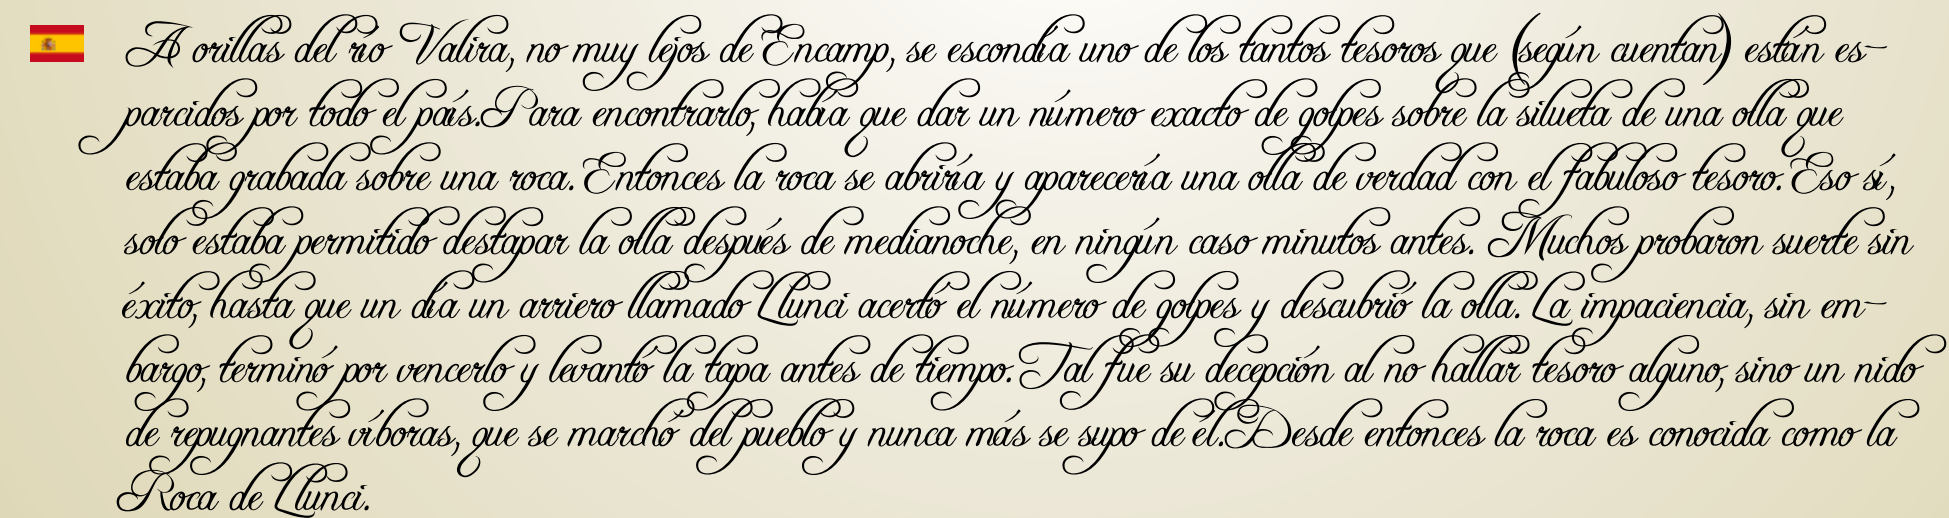 A orillas del río Valira, no muy lejos de Encamp, se escondía uno de los tantos tesoros que (según cuentan) están es-
parcidos por todo el país. Para encontrarlo, había que dar un número exacto de golpes sobre la silueta de una olla que
estaba grabada sobre una roca. Entonces la roca se abriría y aparecería una olla de verdad con el fabuloso tesoro. Eso sí,
solo estaba permitido destapar la olla después de medianoche, en ningún caso minutos antes. Muchos probaron suerte sin
éxito, hasta que un día un arriero llamado Llunci acertó el número de golpes y descubrió la olla. La impaciencia, sin em-
bargo, terminó por vencerlo y levantó la tapa antes de tiempo. Tal fue su decepción al no hallar tesoro alguno, sino un nido
de repugnantes víboras, que se marchó del pueblo y nunca más se supo de él. Desde entonces la roca es conocida como la
Roca de Llunci.